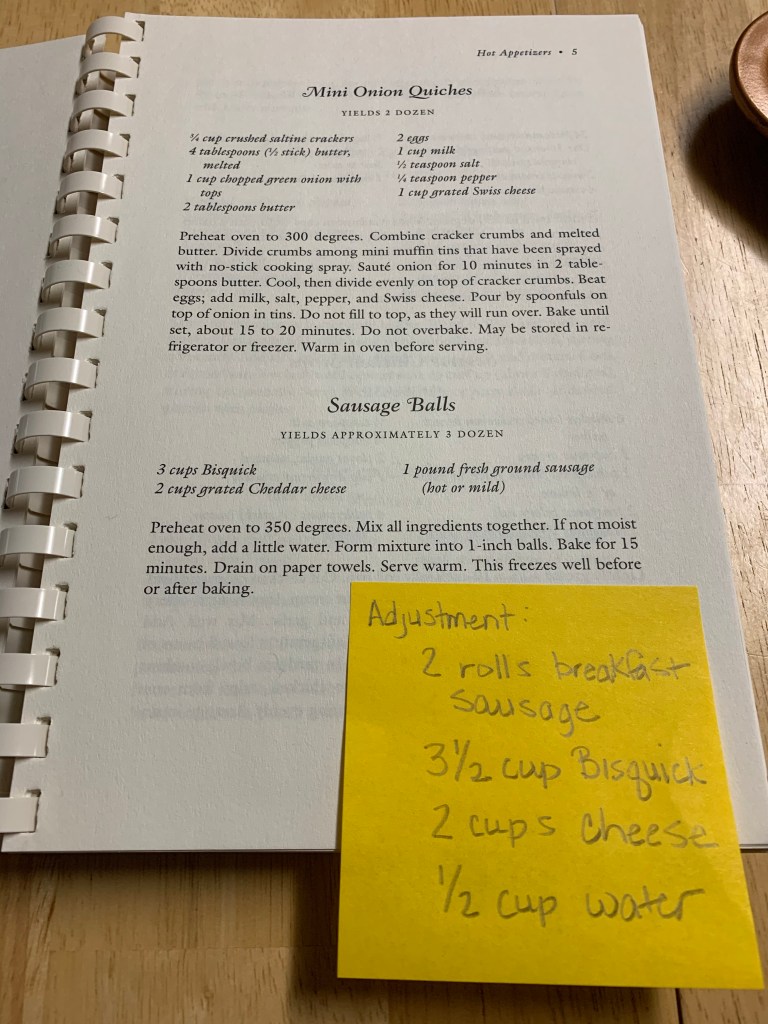 Hot Appetizers • 5
Mini Onion Quiches
YIELDS 2 DOZEN
¾ cup crushed saltine crackers
4 tablespoons (½ stick) butter,
melted
1 cup chopped green onion with
tops
2 tablespoons butter
2 eggs
1 cup milk
½ teaspoon salt
¼ teaspoon pepper
1 cup grated Swiss cheese
Preheat oven to 300 degrees. Combine cracker crumbs and melted
butter. Divide crumbs among mini muffin tins that have been sprayed
with no-stick cooking spray. Sauté onion for 10 minutes in 2 table-
spoons butter. Cool, then divide evenly on top of cracker crumbs. Beat
eggs; add milk, salt, pepper, and Swiss cheese. Pour by spoonfuls on
top of onion in tins. Do not fill to top, as they will run over. Bake until
set, about 15 to 20 minutes. Do not overbake. May be stored in re-
frigerator or freezer. Warm in oven before serving.
Sausage Balls
YIELDS APPROXIMATELY 3 DOZEN
3 cups Bisquick
2 cups grated Cheddar cheese
1 pound fresh ground sausage
(hot or mild)
Preheat oven to 350 degrees. Mix all ingredients together. If not moist
enough, add a little water. Form mixture into 1-inch balls. Bake for 15
minutes. Drain on paper towels. Serve warm. This freezes well before
or after baking.
Adjustment:
2 rolls breakfast
sausage
3½ cup Bisquick
2 cups cheese
½ cup water